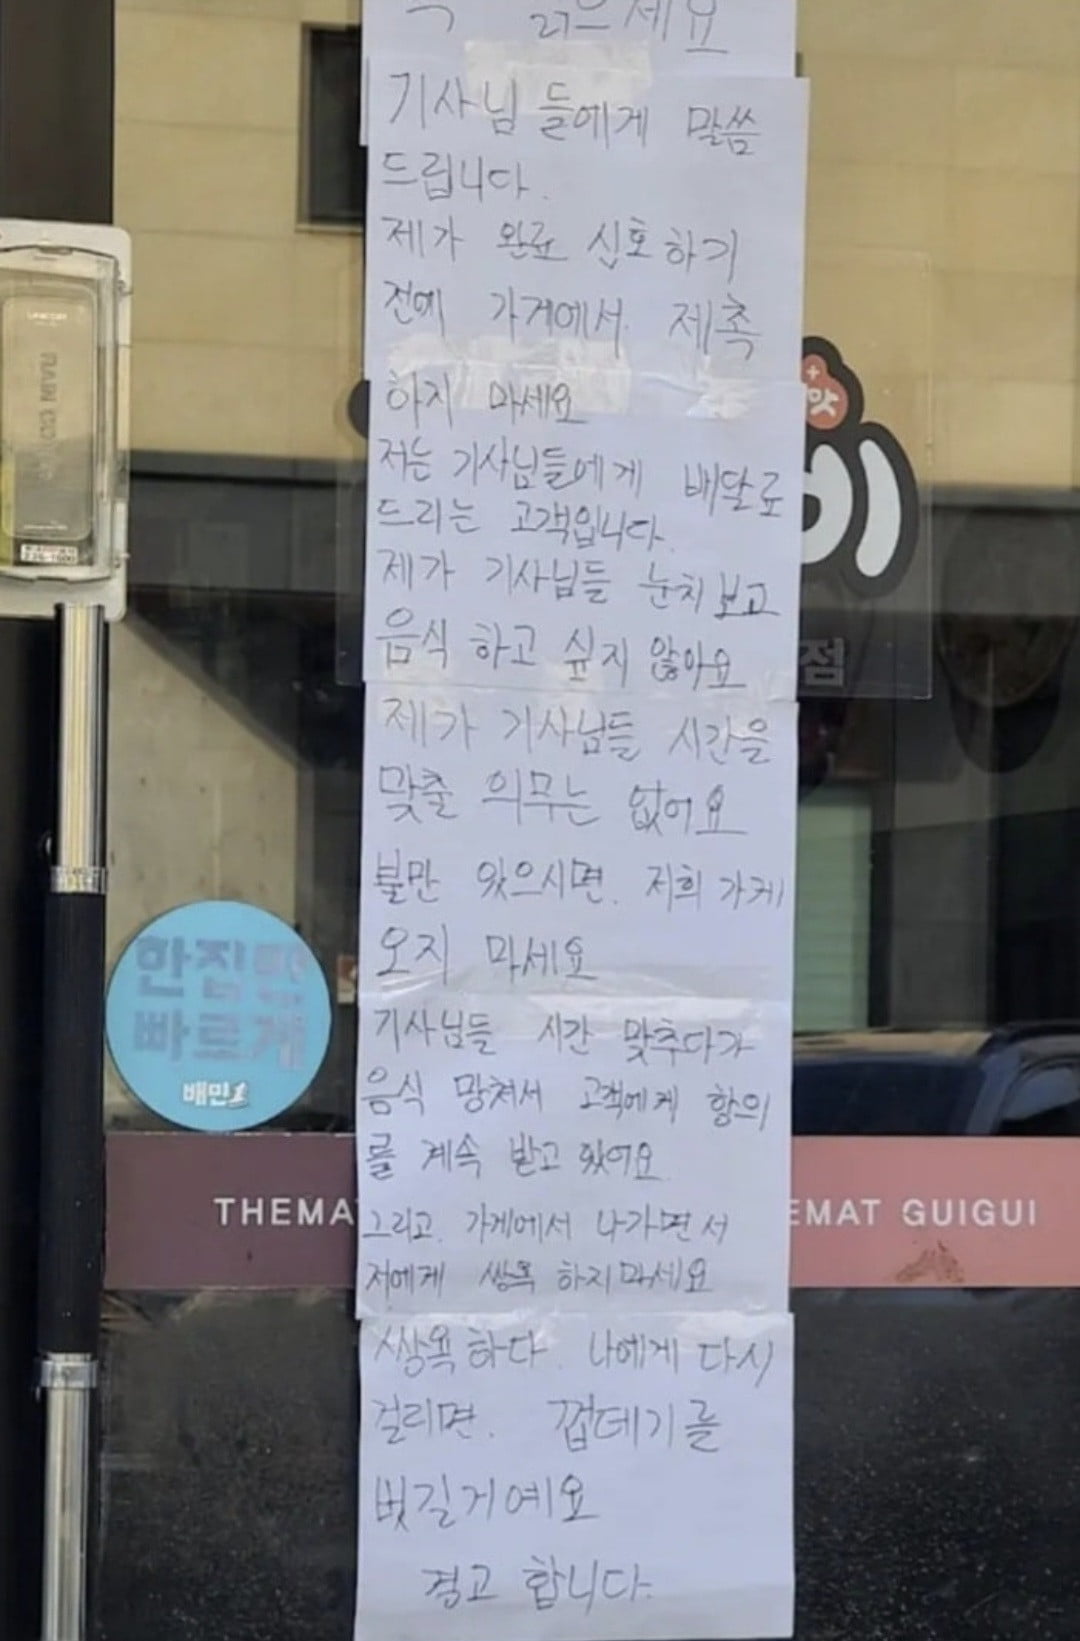 꼭 읽으세요
기사님들에게 말씀
드립니다.
제가 완료 신호하기
전에 가게에서 제촉
하지 마세요
저는 기사님들에게 배달료
드리는 고객입니다.
제가 기사님들 눈치보고
음식 하고 싶지 않아요
제가 기사님들 시간을
맞출 의무는 없어요
불만 있으시면. 저희 가게
오지 마세요
기사님들 시간 맞추다가
음식 망쳐서 고객에게 항의
를 계속 받고 있어요
그리고. 가게에서 나가면서
저에게 쌍욕 하지마세요
쌍욕하다. 나에게 다시
걸리면. 껍데기를
벗길거예요
경고 합니다.
맛
점
한집만
빠르게
배민1
THEMAT
EMAT GUIGUI